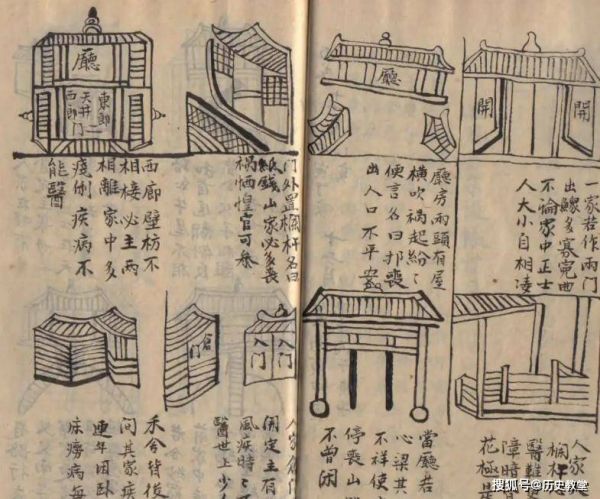 開
開
一家若作兩門
出鰥多寡寃曲
不論家中正士
人大小自相凌
廳
廳房兩頭有屋
横吹禍起紛〻
便言名曰邦喪
出人口不平
門外置欄杆名曰
紙錢山家必多喪
禍恓惶官可
廳
東郎二
天井
西郎门
西廊壁枋不
相接必主兩
相離家中多
疾病不
能醫
人家
醫難
障時
花極
當廳若
心梁其
不祥使
停喪山
不曾闲
入门
入门
门
人家
開定主有
風疾時〻
醫世上少
禾倉背後
問其家疾
連年困卧
痨病
搜狐号@历史教堂